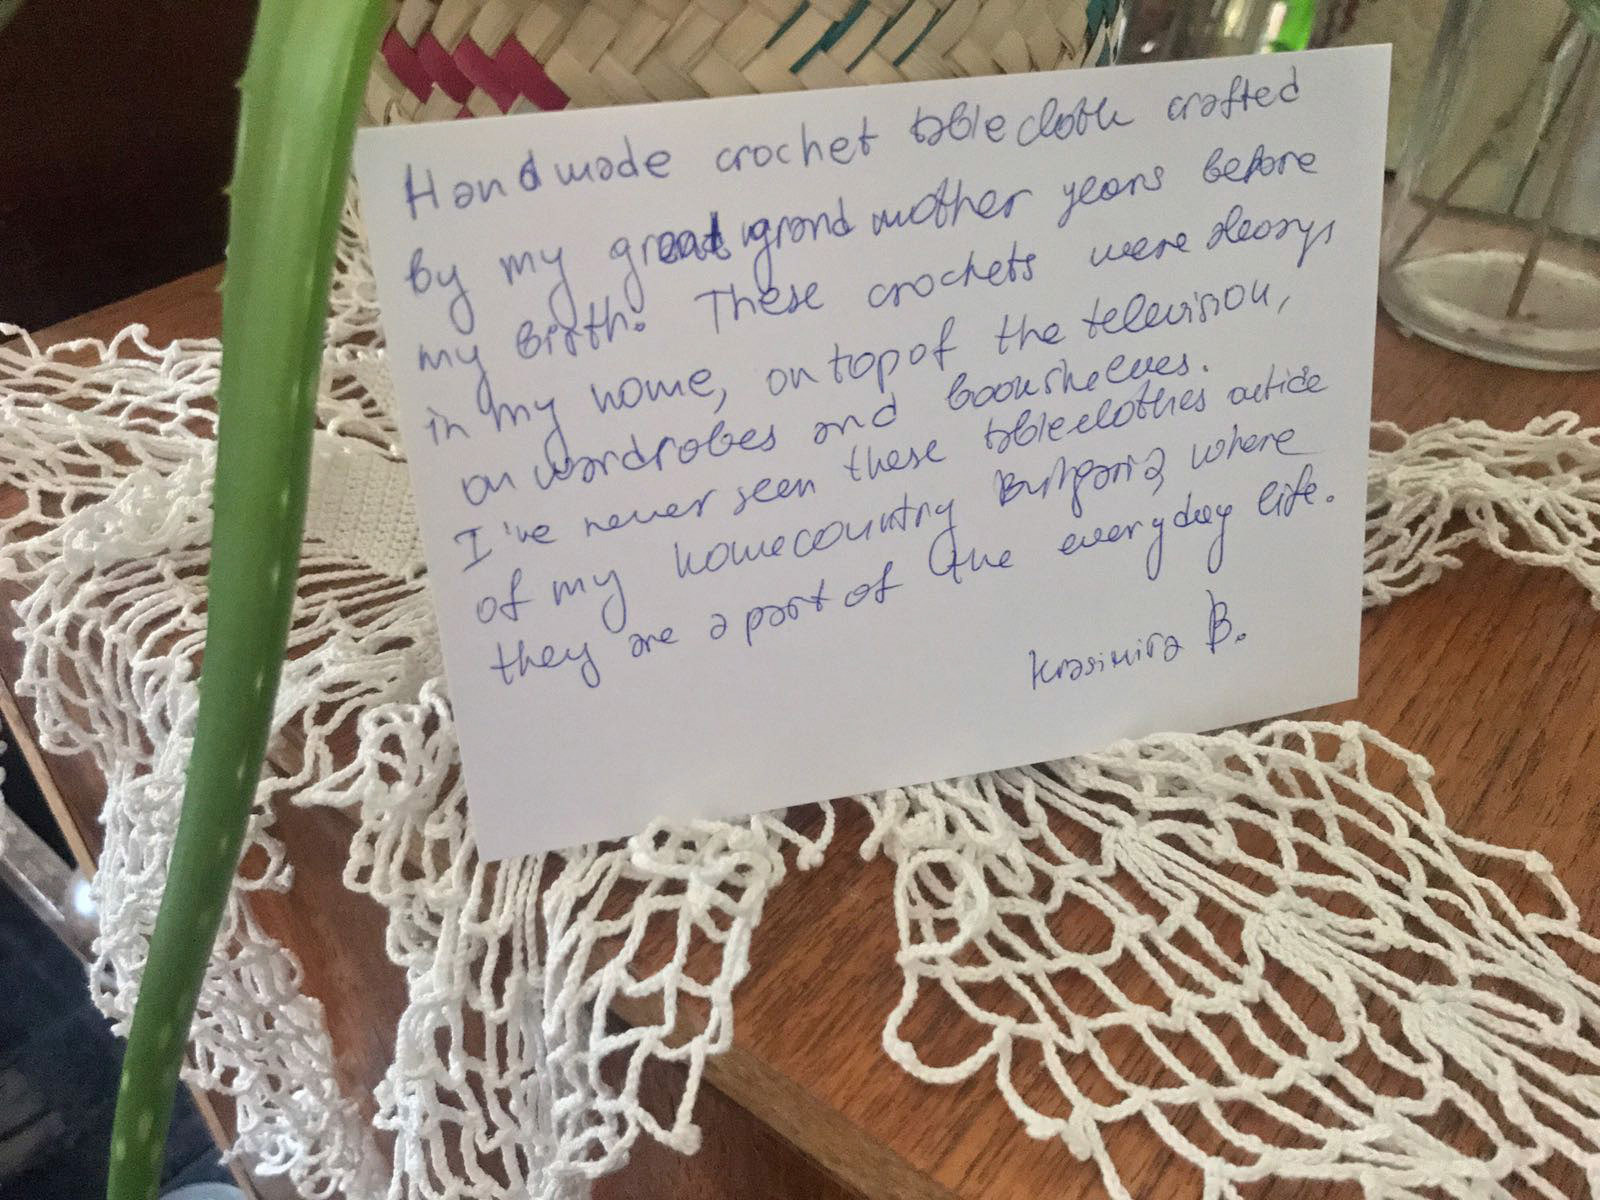 Handmade crochet tablecloth crafted
by my great grandmother years before
my birth. These crochets were always
in my home, on top of the television,
on wardrobes and bookshelves.
I've never seen these tableclothes outside
of my homecountry Bulgaria, where
they are a part of the everyday life.
Krasimira B.